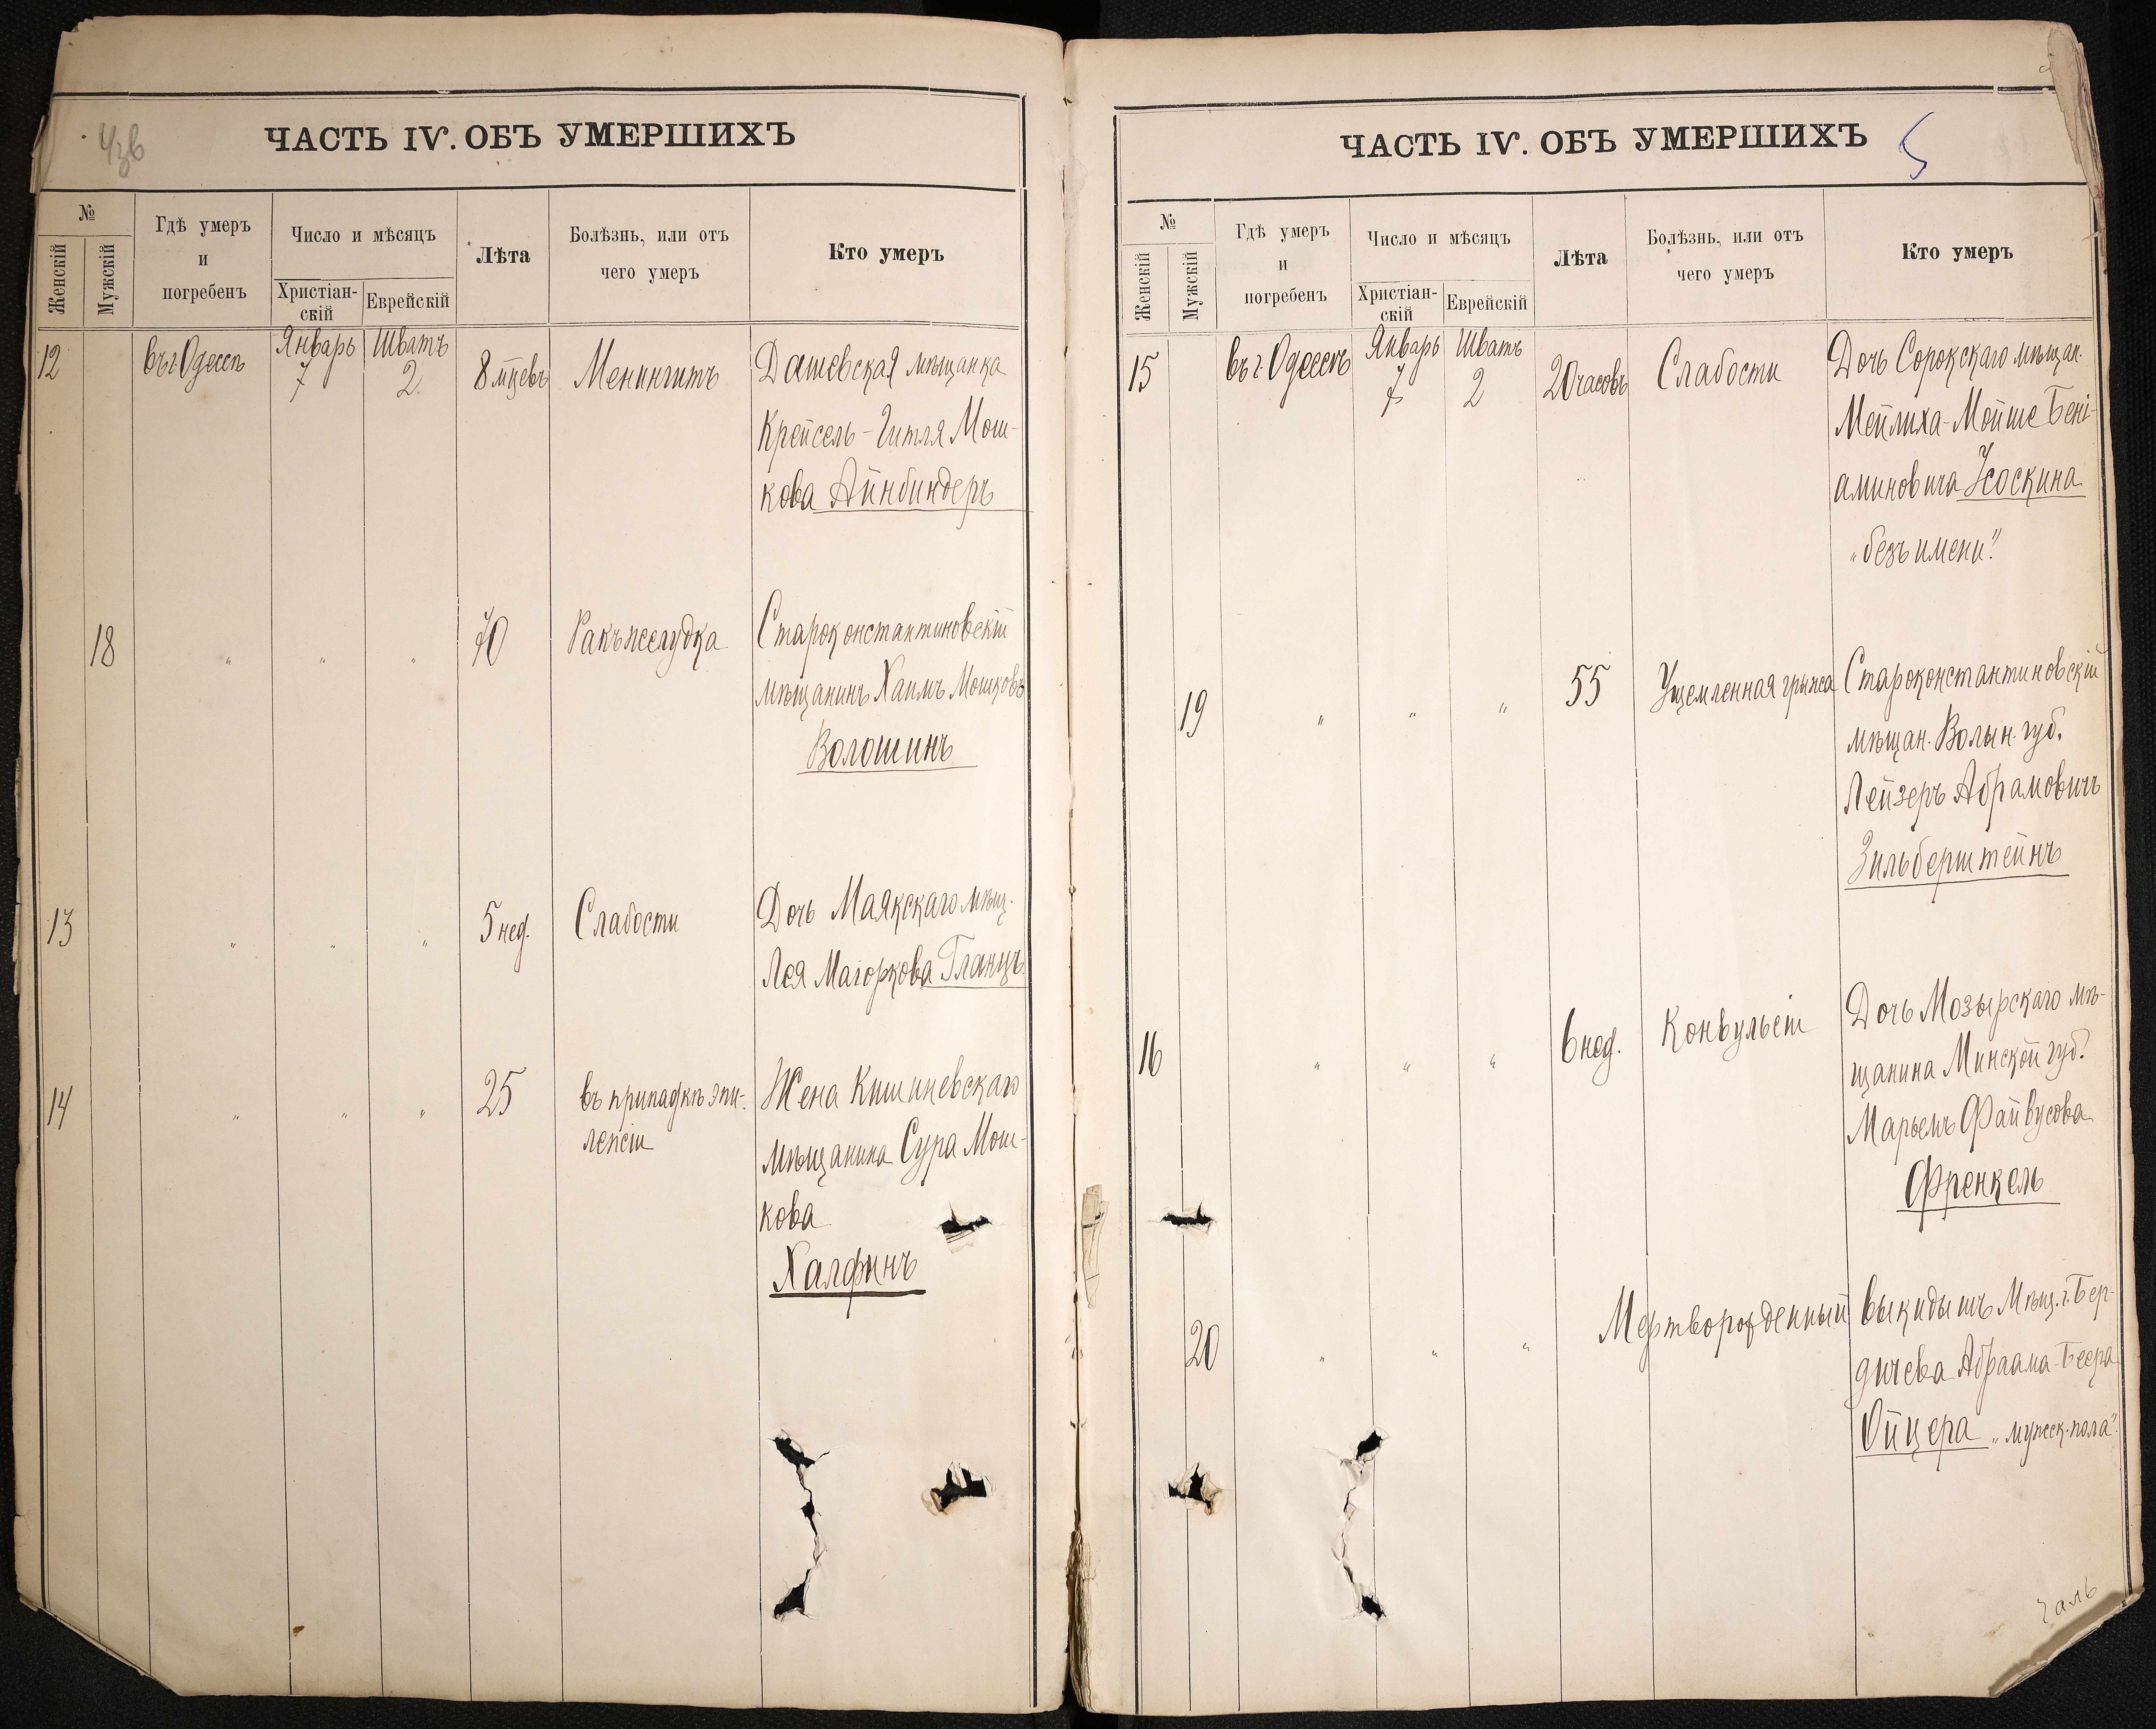 ЧАСТЬ IV. ОБЪ УМЕРШИХЪ
№
Женскій
Мужскій
Гдѣ умеръ
и
погребенъ
Число и мѣсяцъ
Христіан-
скій
Еврейскій
Лѣта
Болѣзнь, или отъ
чего умеръ
Кто умеръ
12
въ г. Одессѣ
Январь
7
Шватъ
2
8 мцевъ
Менингитъ
Дашевская мѣщанка
Крейсель-Гитля Мош-
кова Айнбиндеръ
18
" " "
70
Ракъ желудка
Староконстантиновскій
мѣщанинъ Хаимъ Мошковъ
Волошинъ
13
" " "
5 нед.
Слабости
Дочь Маякскаго мѣщ.
Лея Магоркова Гланцъ
14
" " "
25
въ припадкѣ эпи-
лепсіи
Жена Кишиневскаго
мѣщанина Сура Мош-
кова
Халфинъ
ЧАСТЬ IV. ОБЪ УМЕРШИХЪ
5
№
Женскій
Мужскій
Гдѣ умеръ
и
погребенъ
Число и мѣсяцъ
Христіан-
скій
Еврейскій
Лѣта
Болѣзнь, или отъ
чего умеръ
Кто умеръ
15
въ г. Одессѣ
Январь
7
Шватъ
2
20 часовъ
Слабости
Дочь Сорокскаго мѣщан.
Мейлиха-Мойше Бені-
аминовича Носкина
"безъ имени"
19
" " "
55
Ущемленная грыжа
Староконстантиновскій
мѣщан. Волын. губ.
Лейзеръ Абрамовичъ
Зильберштейнъ
16
" " "
6 нед.
Конвульсіи
Дочь Мозырскаго мѣ-
щанина Минской губ.
Марьемъ Файвусова
Френкель
20
" " "
Мертворожденный
выкидышъ Мѣщ. г. Бер-
дичева Абраама-Беера
Ойцера "мужск. пола"